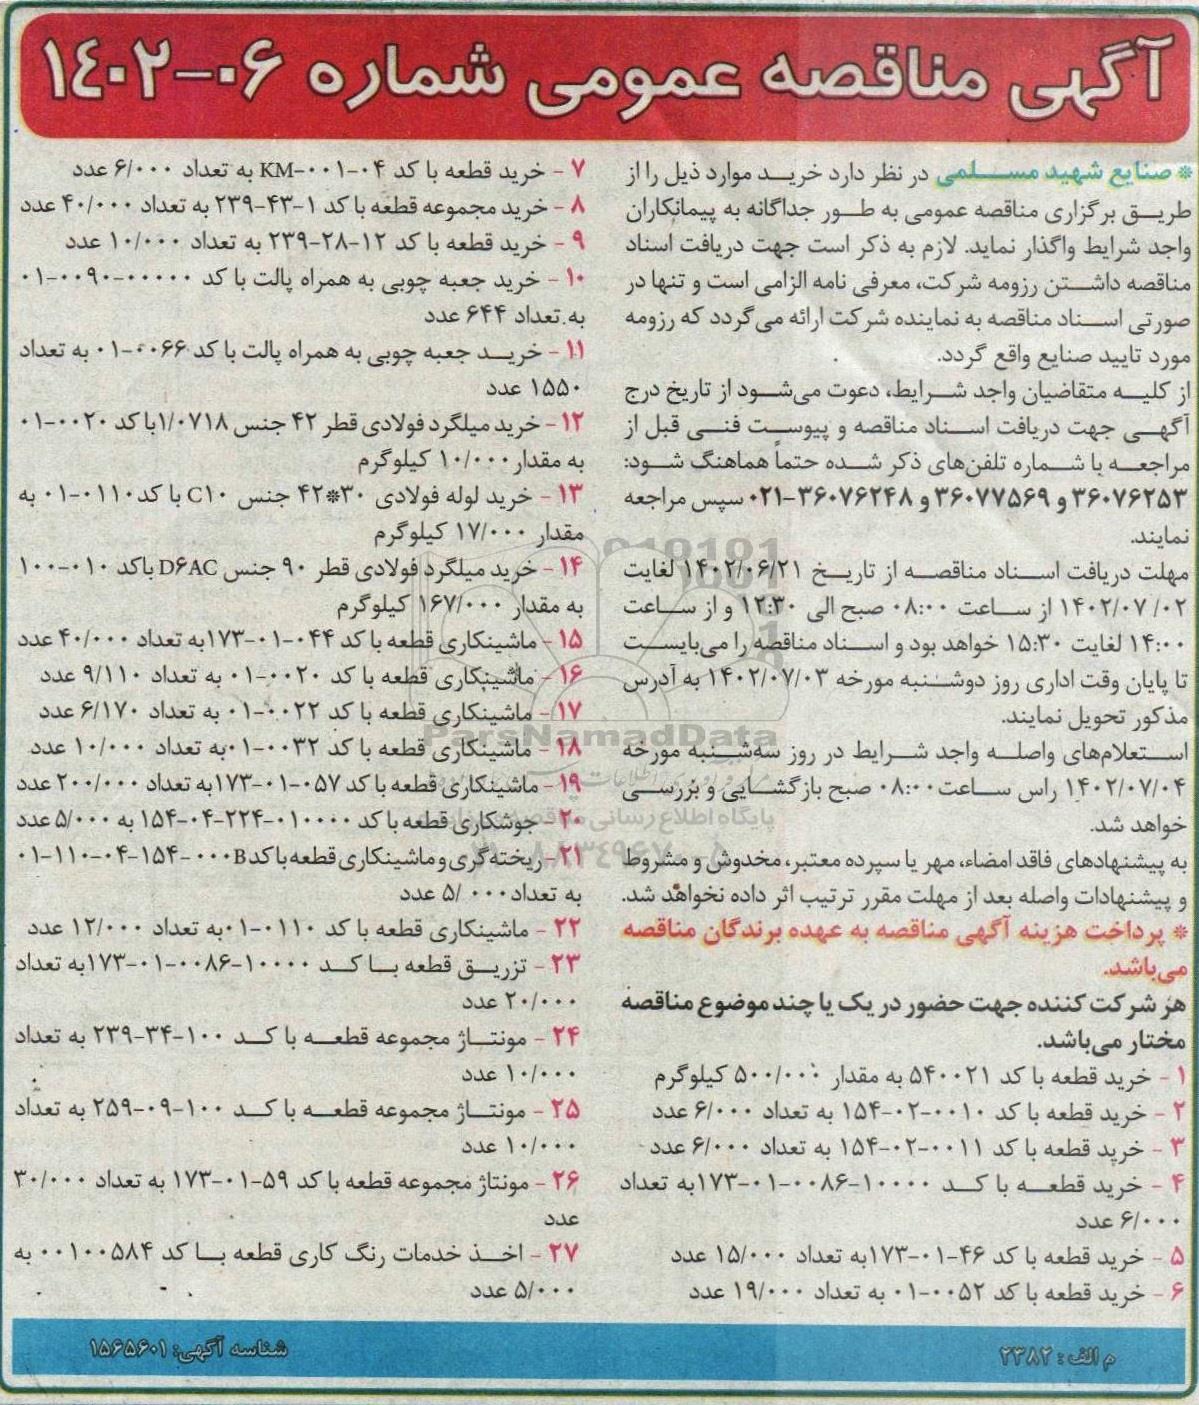 آگهی مناقصه عمومی شماره ۰۶-۱٤۰۲
* صنایع شهید مسلمی در نظر دارد خرید موارد ذیل را از
طریق برگزاری مناقصه عمومی به طور جداگانه به پیمانکاران
واجد شرایط واگذار نماید. لازم به ذکر است جهت دریافت اسناد
مناقصه داشتن رزومه شرکت، معرفی نامه الزامی است و تنها در
صورتی اسناد مناقصه به نماینده شرکت ارائه می‌گردد که رزومه
مورد تایید صنایع واقع گردد.
از کلیه متقاضیان واجد شرایط، دعوت می‌شود از تاریخ درج
آگهی جهت دریافت اسناد مناقصه و پیوست فنی قبل از
مراجعه با شماره تلفن‌های ذکر شده حتماً هماهنگ شود:
۳۶۰۷۶۲۵۳ و ۳۶۰۷۷۵۶۹ و ۳۶۰۷۶۲۴۸-۰۲۱ سپس مراجعه
نمایند.
مهلت دریافت اسناد مناقصه از تاریخ ۱۴۰۲/۰۶/۲۱ لغایت
۱۴۰۲/۰۷/۰۲ از ساعت ۰۸:۰۰ صبح الی ۱۲:۳۰ و از ساعت
۱۴:۰۰ لغایت ۱۵:۳۰ خواهد بود و اسناد مناقصه را می‌بایست
تا پایان وقت اداری روز دوشنبه مورخه ۱۴۰۲/۰۷/۰۳ به آدرس
مذکور تحویل نمایند.
استعلام‌های واصله واجد شرایط در روز سه‌شنبه مورخه
۱۴۰۲/۰۷/۰۴ راس ساعت ۰۸:۰۰ صبح بازگشایی و بررسی
خواهد شد.
به پیشنهادهای فاقد امضاء، مهر یا سپرده معتبر، مخدوش و مشروط
و پیشنهادات واصله بعد از مهلت مقرر ترتیب اثر داده نخواهد شد.
* پرداخت هزینه آگهی مناقصه به عهده برندگان مناقصه
می‌باشد.
هر شرکت کننده جهت حضور در یک یا چند موضوع مناقصه
مختار می‌باشد.
۱ - خرید قطعه با کد ۵۴۰۰۲۱ به مقدار ۵۰۰/۰۰۰ کیلوگرم
۲ - خرید قطعه با کد ۰۰۱۰-۰۲-۱۵۴ به تعداد ۶/۰۰۰ عدد
۳ - خرید قطعه با کد ۰۰۱۱-۰۲-۱۵۴ به تعداد ۶/۰۰۰ عدد
۴ - خرید قطعه با کد ۱۰۰۰۰-۰۰۸۶-۰۱-۱۷۳به تعداد
۶/۰۰۰ عدد
۵ - خرید قطعه با کد ۴۶-۰۱-۱۷۳به تعداد ۱۵/۰۰۰ عدد
۶ - خرید قطعه با کد ۰۰۵۲-۰۱ به تعداد ۱۹/۰۰۰ عدد
۷ - خرید قطعه با کد KM-۰۰۱-۰۴ به تعداد ۶/۰۰۰ عدد
۸ - خرید مجموعه قطعه با کد ۱-۴۳-۲۳۹ به تعداد ۴۰/۰۰۰ عدد
۹ - خرید قطعه با کد ۱۲-۲۸-۲۳۹ به تعداد ۱۰/۰۰۰ عدد
۱۰ - خرید جعبه چوبی به همراه پالت با کد ۰۰۰۰۰-۰۰۹۰-۰۱
به تعداد ۶۴۴ عدد
۱۱ - خرید جعبه چوبی به همراه پالت با کد ۰۰۶۶-۰۱ به تعداد
۱۵۵۰ عدد
۱۲ - خرید میلگرد فولادی قطر ۴۲ جنس ۱/۰۷۱۸با کد ۰۰۲۰-۰۱
به مقدار ۱۰/۰۰۰ کیلوگرم
۱۳ - خرید لوله فولادی ۳۰*۴۲ جنس C۱۰ با کد ۰۱۱۰-۰۱ به
مقدار ۱۷/۰۰۰ کیلوگرم
۱۴ - خرید میلگرد فولادی قطر ۹۰ جنس D۶AC باکد ۰۱۰-۱۰۰
به مقدار ۱۶۷/۰۰۰ کیلوگرم
۱۵ - ماشینکاری قطعه با کد ۰۴۴-۰۱-۱۷۳به تعداد ۴۰/۰۰۰ عدد
۱۶ - ماشینکاری قطعه با کد ۰۰۲۰-۰۱ به تعداد ۹/۱۱۰ عدد
۱۷ - ماشینکاری قطعه با کد ۰۰۲۲-۰۱ به تعداد ۶/۱۷۰ عدد
۱۸ - ماشینکاری قطعه با کد ۰۰۳۲-۰۱به تعداد ۱۰/۰۰۰ عدد
۱۹ - ماشینکاری قطعه با کد ۰۵۷-۰۱-۱۷۳به تعداد ۲۰۰/۰۰۰ عدد
۲۰ - جوشکاری قطعه با کد ۰۱۰۰۰۰-۲۲۴-۰۴-۱۵۴ به ۵/۰۰۰ عدد
۲۱ - ریخته‌گری و ماشینکاری قطعه با کد B۰۰۰-۱۵۴-۰۴-۱۱۰-۰۱
به تعداد ۵/۰۰۰ عدد
۲۲ - ماشینکاری قطعه با کد ۰۱۱۰-۰۱به تعداد ۱۲/۰۰۰ عدد
۲۳ - تزریق قطعه با کد ۱۰۰۰۰-۰۰۸۶-۰۱-۱۷۳به تعداد
۲۰/۰۰۰ عدد
۲۴ - مونتاژ مجموعه قطعه با کد ۱۰۰-۳۴-۲۳۹ به تعداد
۱۰/۰۰۰ عدد
۲۵ - مونتاژ مجموعه قطعه با کد ۱۰۰-۰۹-۲۵۹ به تعداد
۱۰/۰۰۰ عدد
۲۶ - مونتاژ مجموعه قطعه با کد ۵۹-۰۱-۱۷۳ به تعداد ۳۰/۰۰۰
عدد
۲۷ - اخذ خدمات رنگ کاری قطعه با کد ۰۰۱۰۰۵۸۴ به
۵/۰۰۰ عدد
م الف : ۲۳۸۲
شناسه آگهی: ۱۵۶۵۶۰۱
ParsNamadData
پایگاه اطلاع رسانی